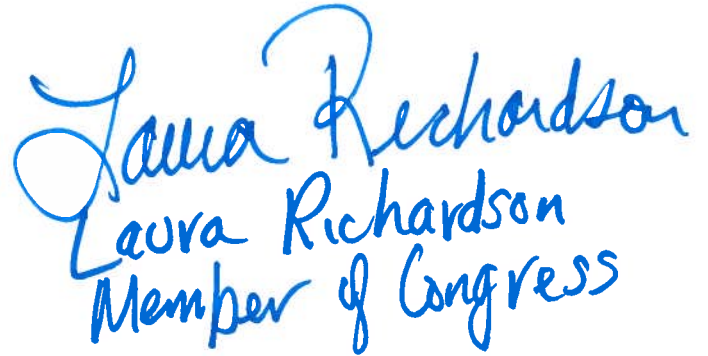 Laura Richardson
Laura Richardson
Member of Congress